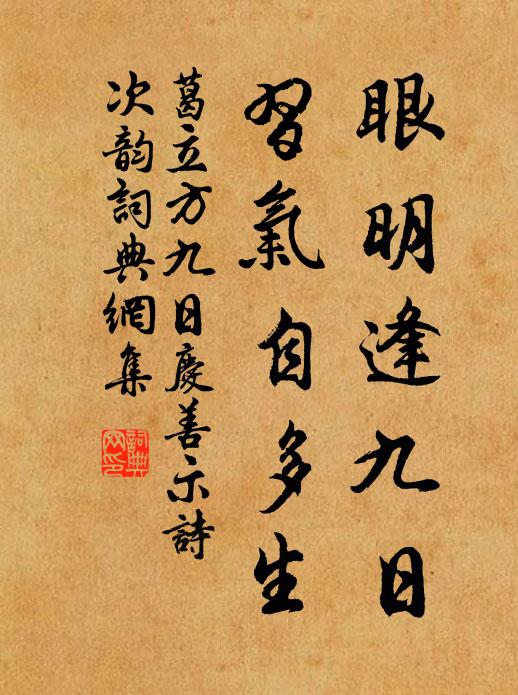 眼明逢九日
習氣自多生
葛立方九日慶善示詩
次韵詞典網集
詞典網印